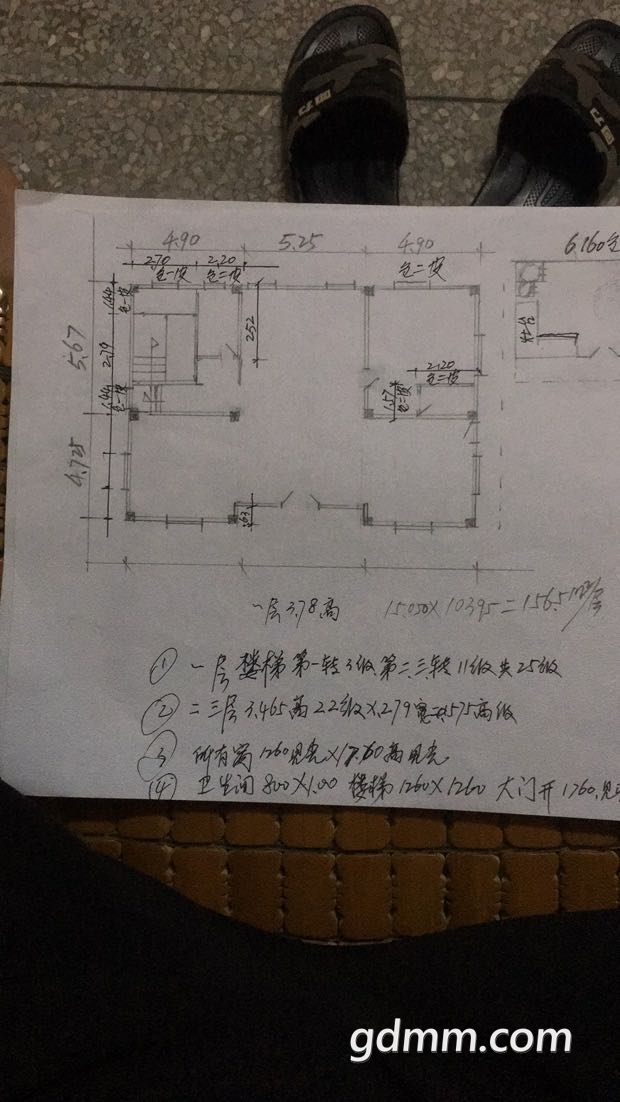 4.90 5.25 4.90 6.160
2.70 2.20
包一皮 包二皮 包二皮
1.44
5.67
2.79
2.52
灶台
2.20
包二皮
1.57
包二皮
1.44
包一皮
4.725
.63
一层3.78高 15.050×10395=156.5m²/层
① 一层楼梯第一转3级.第二.三转11级共25级
② 二三层3.465高22级×.279宽 .575高级
③ 所有窗1260见光×1760高见光
④ 卫生间800×1.00 楼梯1260×1260 大门开1760.见
gdmm.com